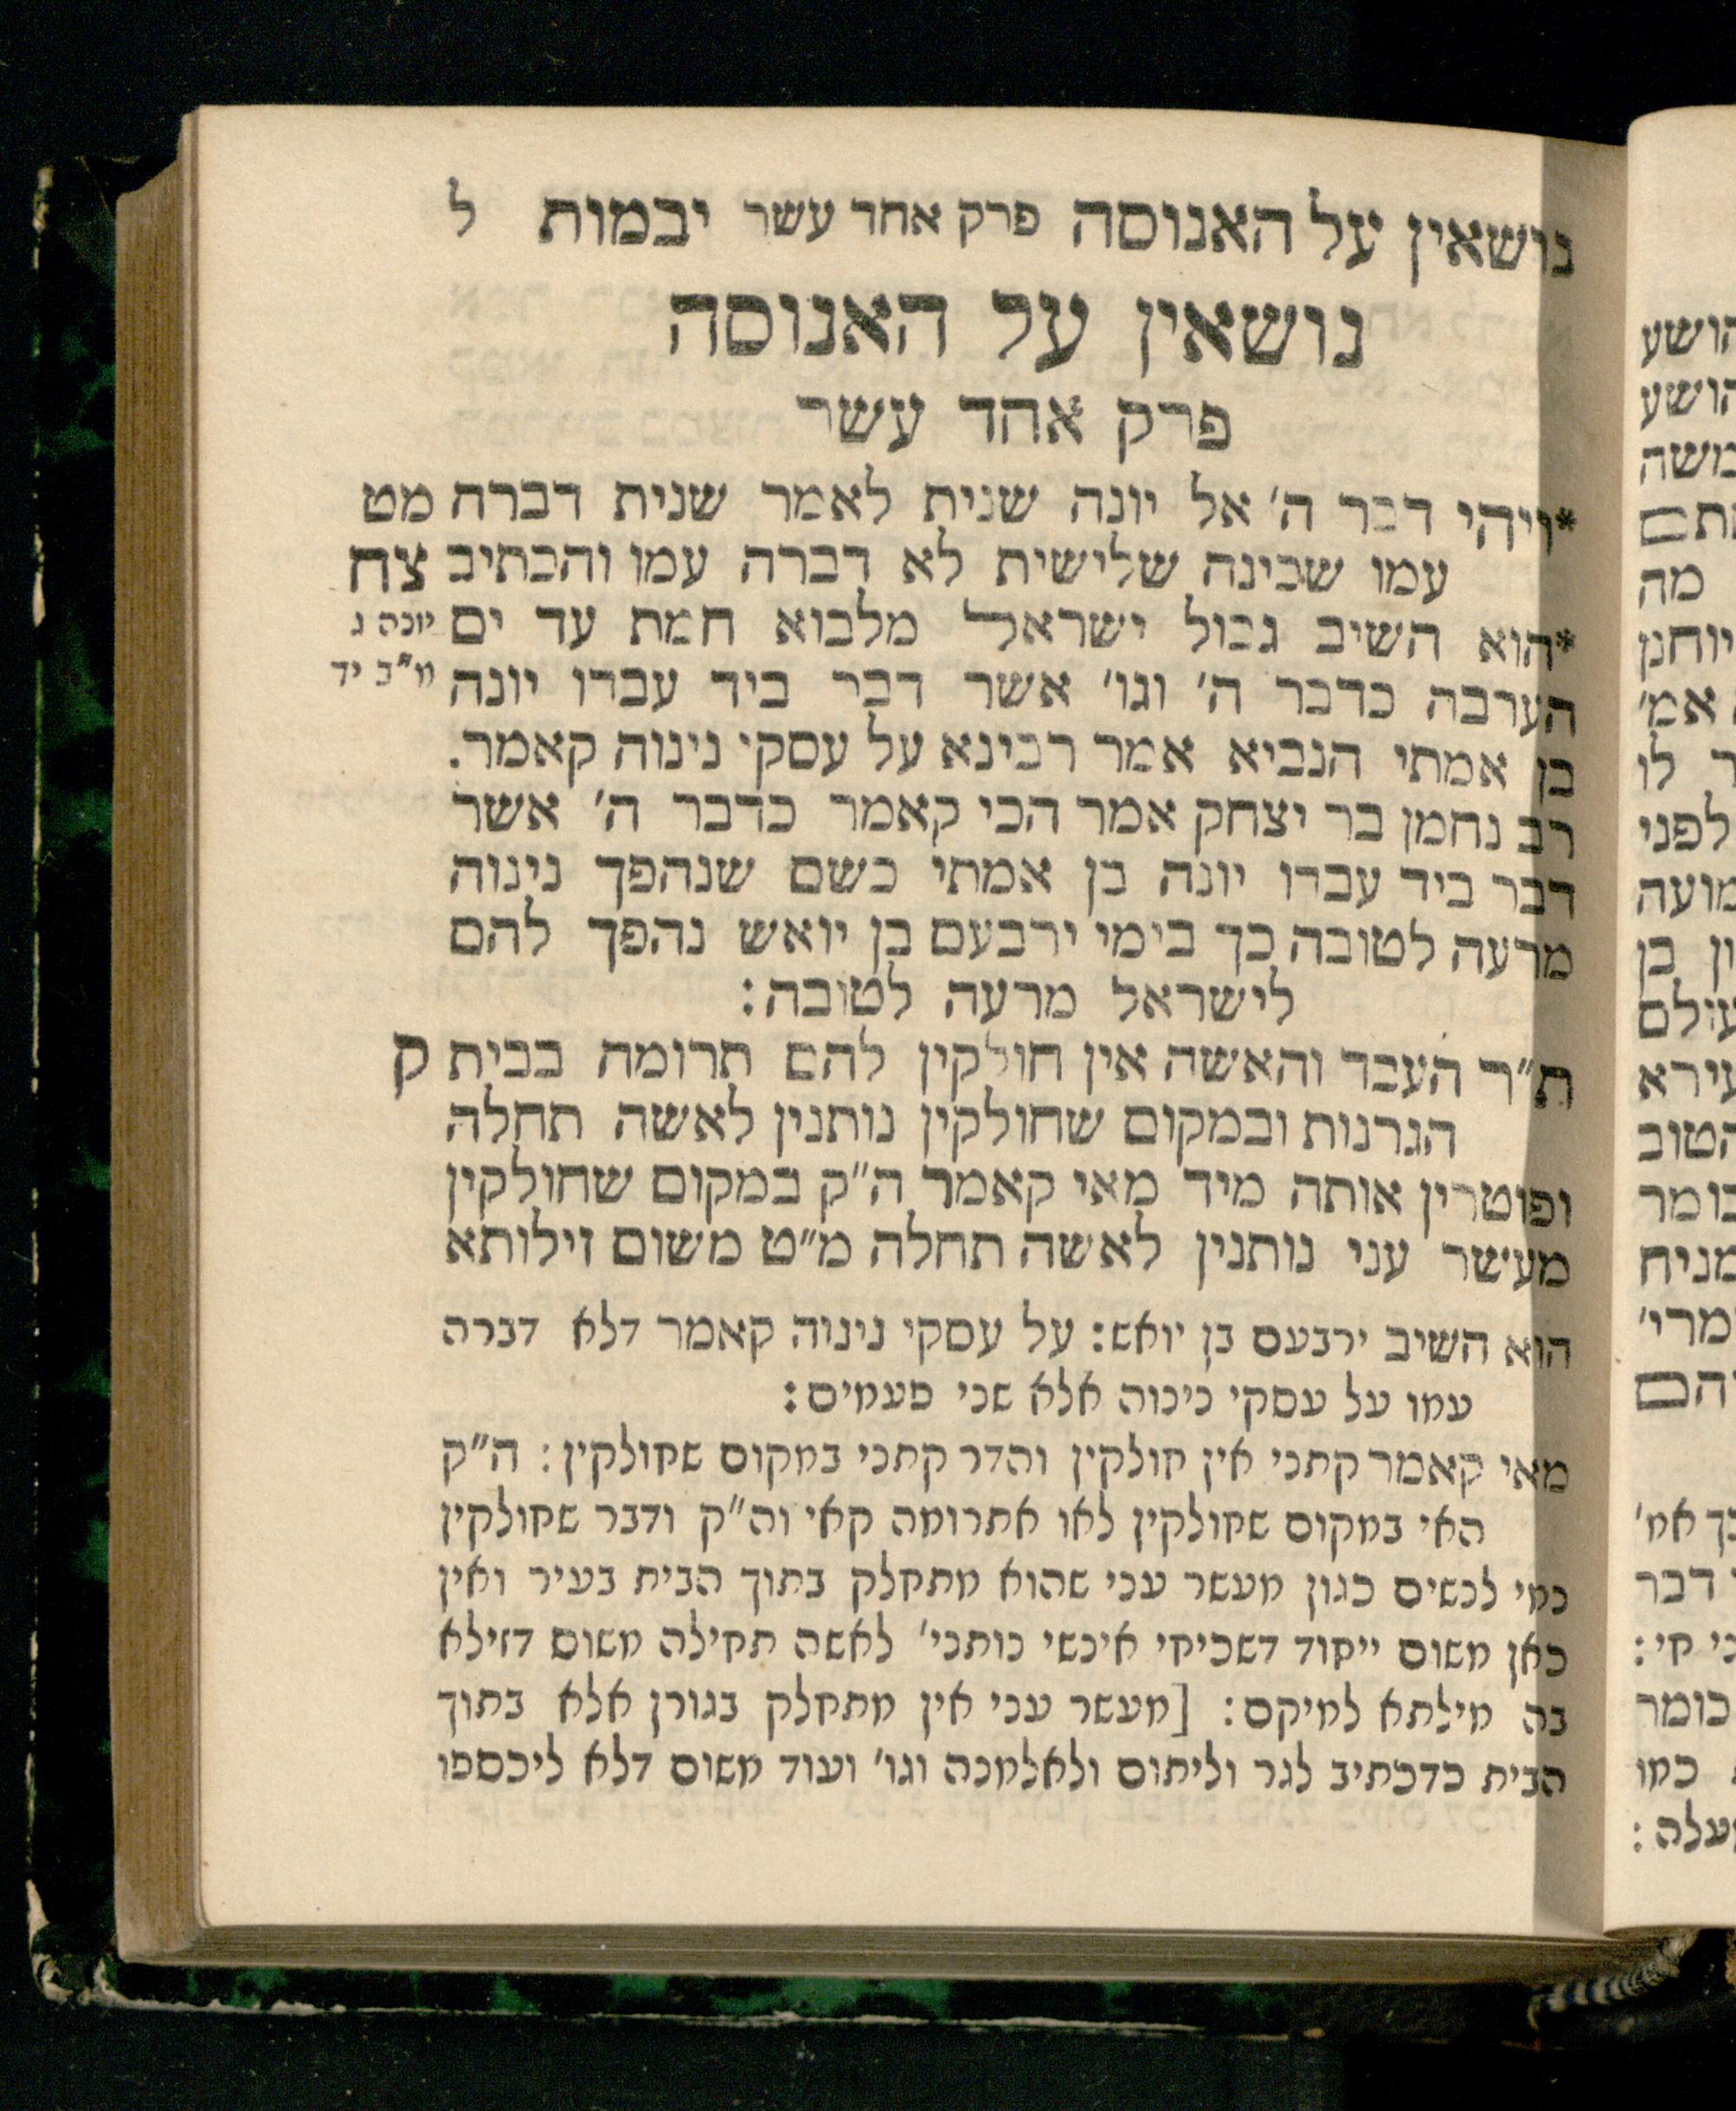 נושאין על האנוסה פרק אחד עשר יבמות ל
נושאין על האנוסה
פרק אחד עשר
*ויהי דבר ה׳ אל יונה שנית לאמר שנית דברה מט
עמו שכינה שלישית לא דברה עמו והכתיב צח
*הוא השיב גבול ישראל מלבוא חמת עד ים יונה ג
הערבה כדבר ה׳ וגו׳ אשר דבר ביד עבדו יונה מ״ב יד
בן אמתי הנביא אמר רבינא על עסקי נינוה קאמר.
רב נחמן בר יצחק אמר הכי קאמר כדבר ה׳ אשר
דבר ביד עבדו יונה בן אמתי כשם שנהפך נינוה
מרעה לטובה כך בימי ירבעם בן יואש נהפך להם
לישראל מרעה לטובה:
ת״ר העבד והאשה אין חולקין להם תרומה בבית ק
הגרנות ובמקום שחולקין נותנין לאשה תחלה
ופוטרין אותה מיד מאי קאמר ה״ק במקום שחולקין
מעישר עני נותנין לאשה תחלה מ״ט משום זילותא
הוא השיב ירבעם בן יואש: על עסקי נינוה קאמר דלא דברה
עמו על עסקי נינוה אלא שני פעמים:
מאי קאמר קתני אין חולקין והדר קתני במקום שחולקין: ה״ק
האי במקום שחולקין לאו אתרומה קאי וה״ק ודבר שחולקין
נמי לנשים כגון מעשר עני שהוא מתחלק בתוך הבית בעיר ואין
כאן משום ייחוד דשכיחי אינשי נותני׳ לאשה תחילה משום דזילא
בה מילתא למיקם: [מעשר עני אין מתחלק בגורן אלא בתוך
הבית כדכתיב לגר וליתום ולאלמנה וגו׳ ועוד משום דלא ליכספו